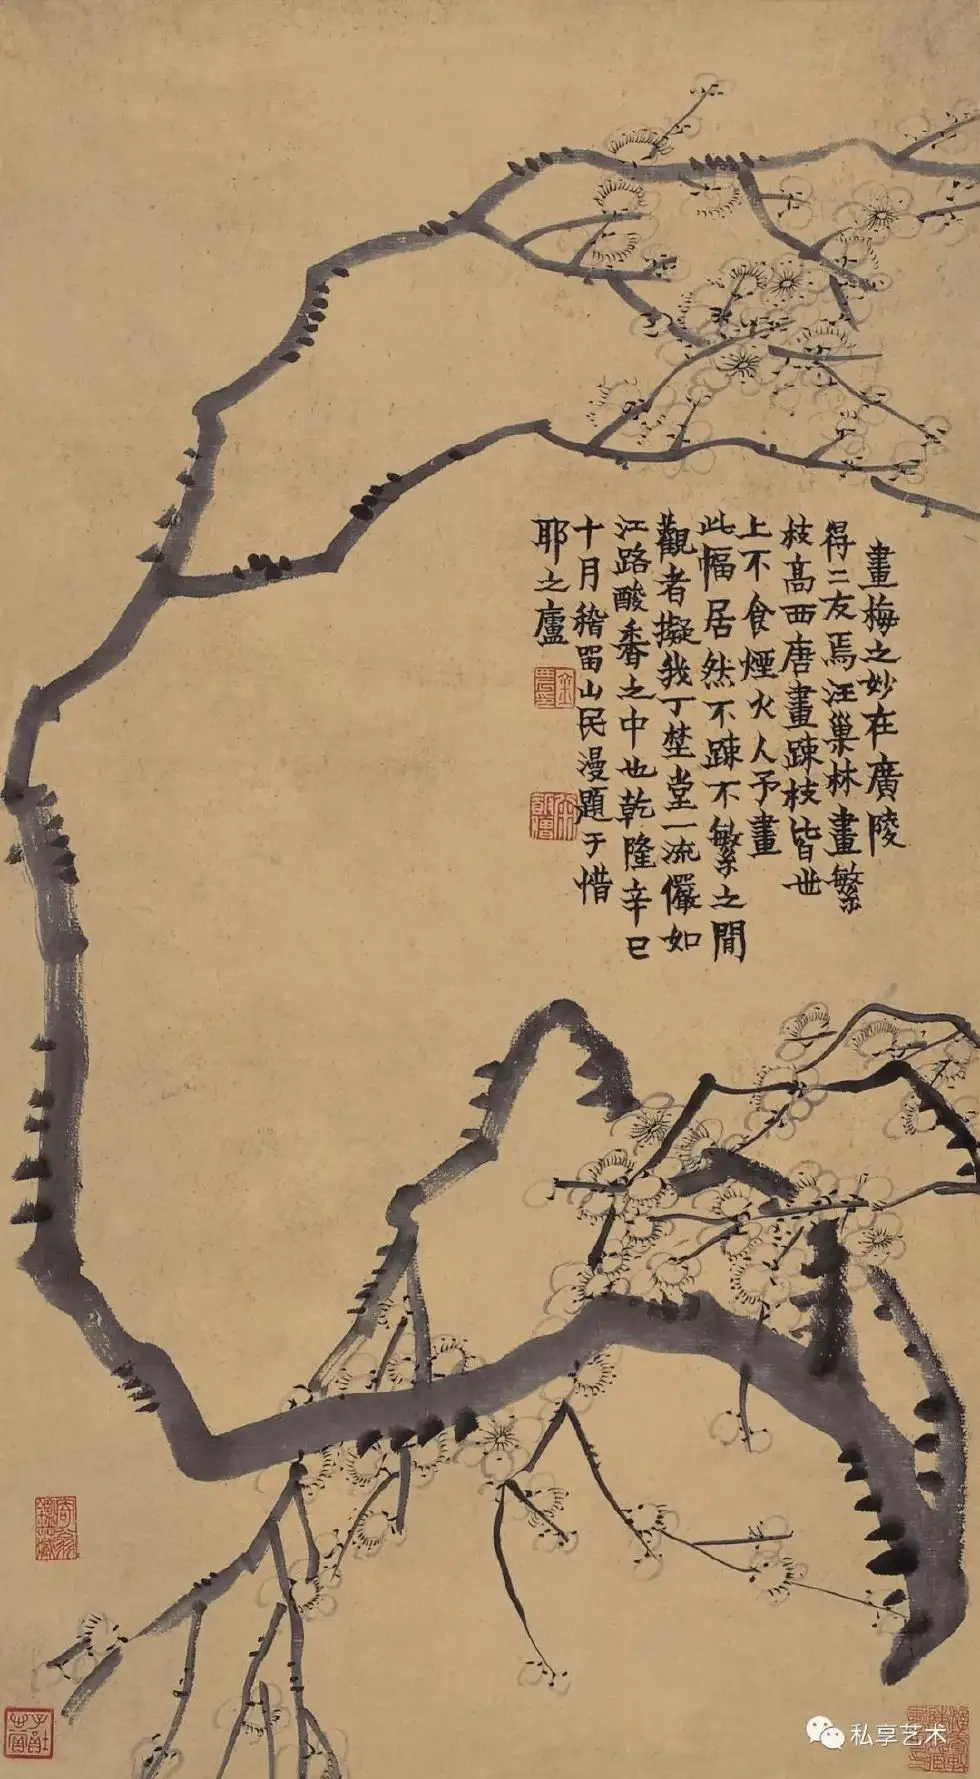 畫梅之妙在廣陵
得二友焉汪巢林畫繁
枝高西唐畫踈枝皆世
上不食煙火人予畫
此幅居然不踈不繁之間
觀者擬我丁埜堂一流儼如
江路酸香之中也乾隆辛巳
十月稽畱山民漫題于惜
耶之廬
私享艺术